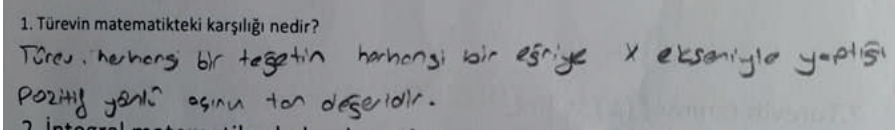 1. Türevin matematikteki karşılığı nedir?
Türev, herhangi bir teğetin herhangi bir eğriye X ekseniyle yaptığı
pozitif yönlü açının tan değeridir.
2. İntegral